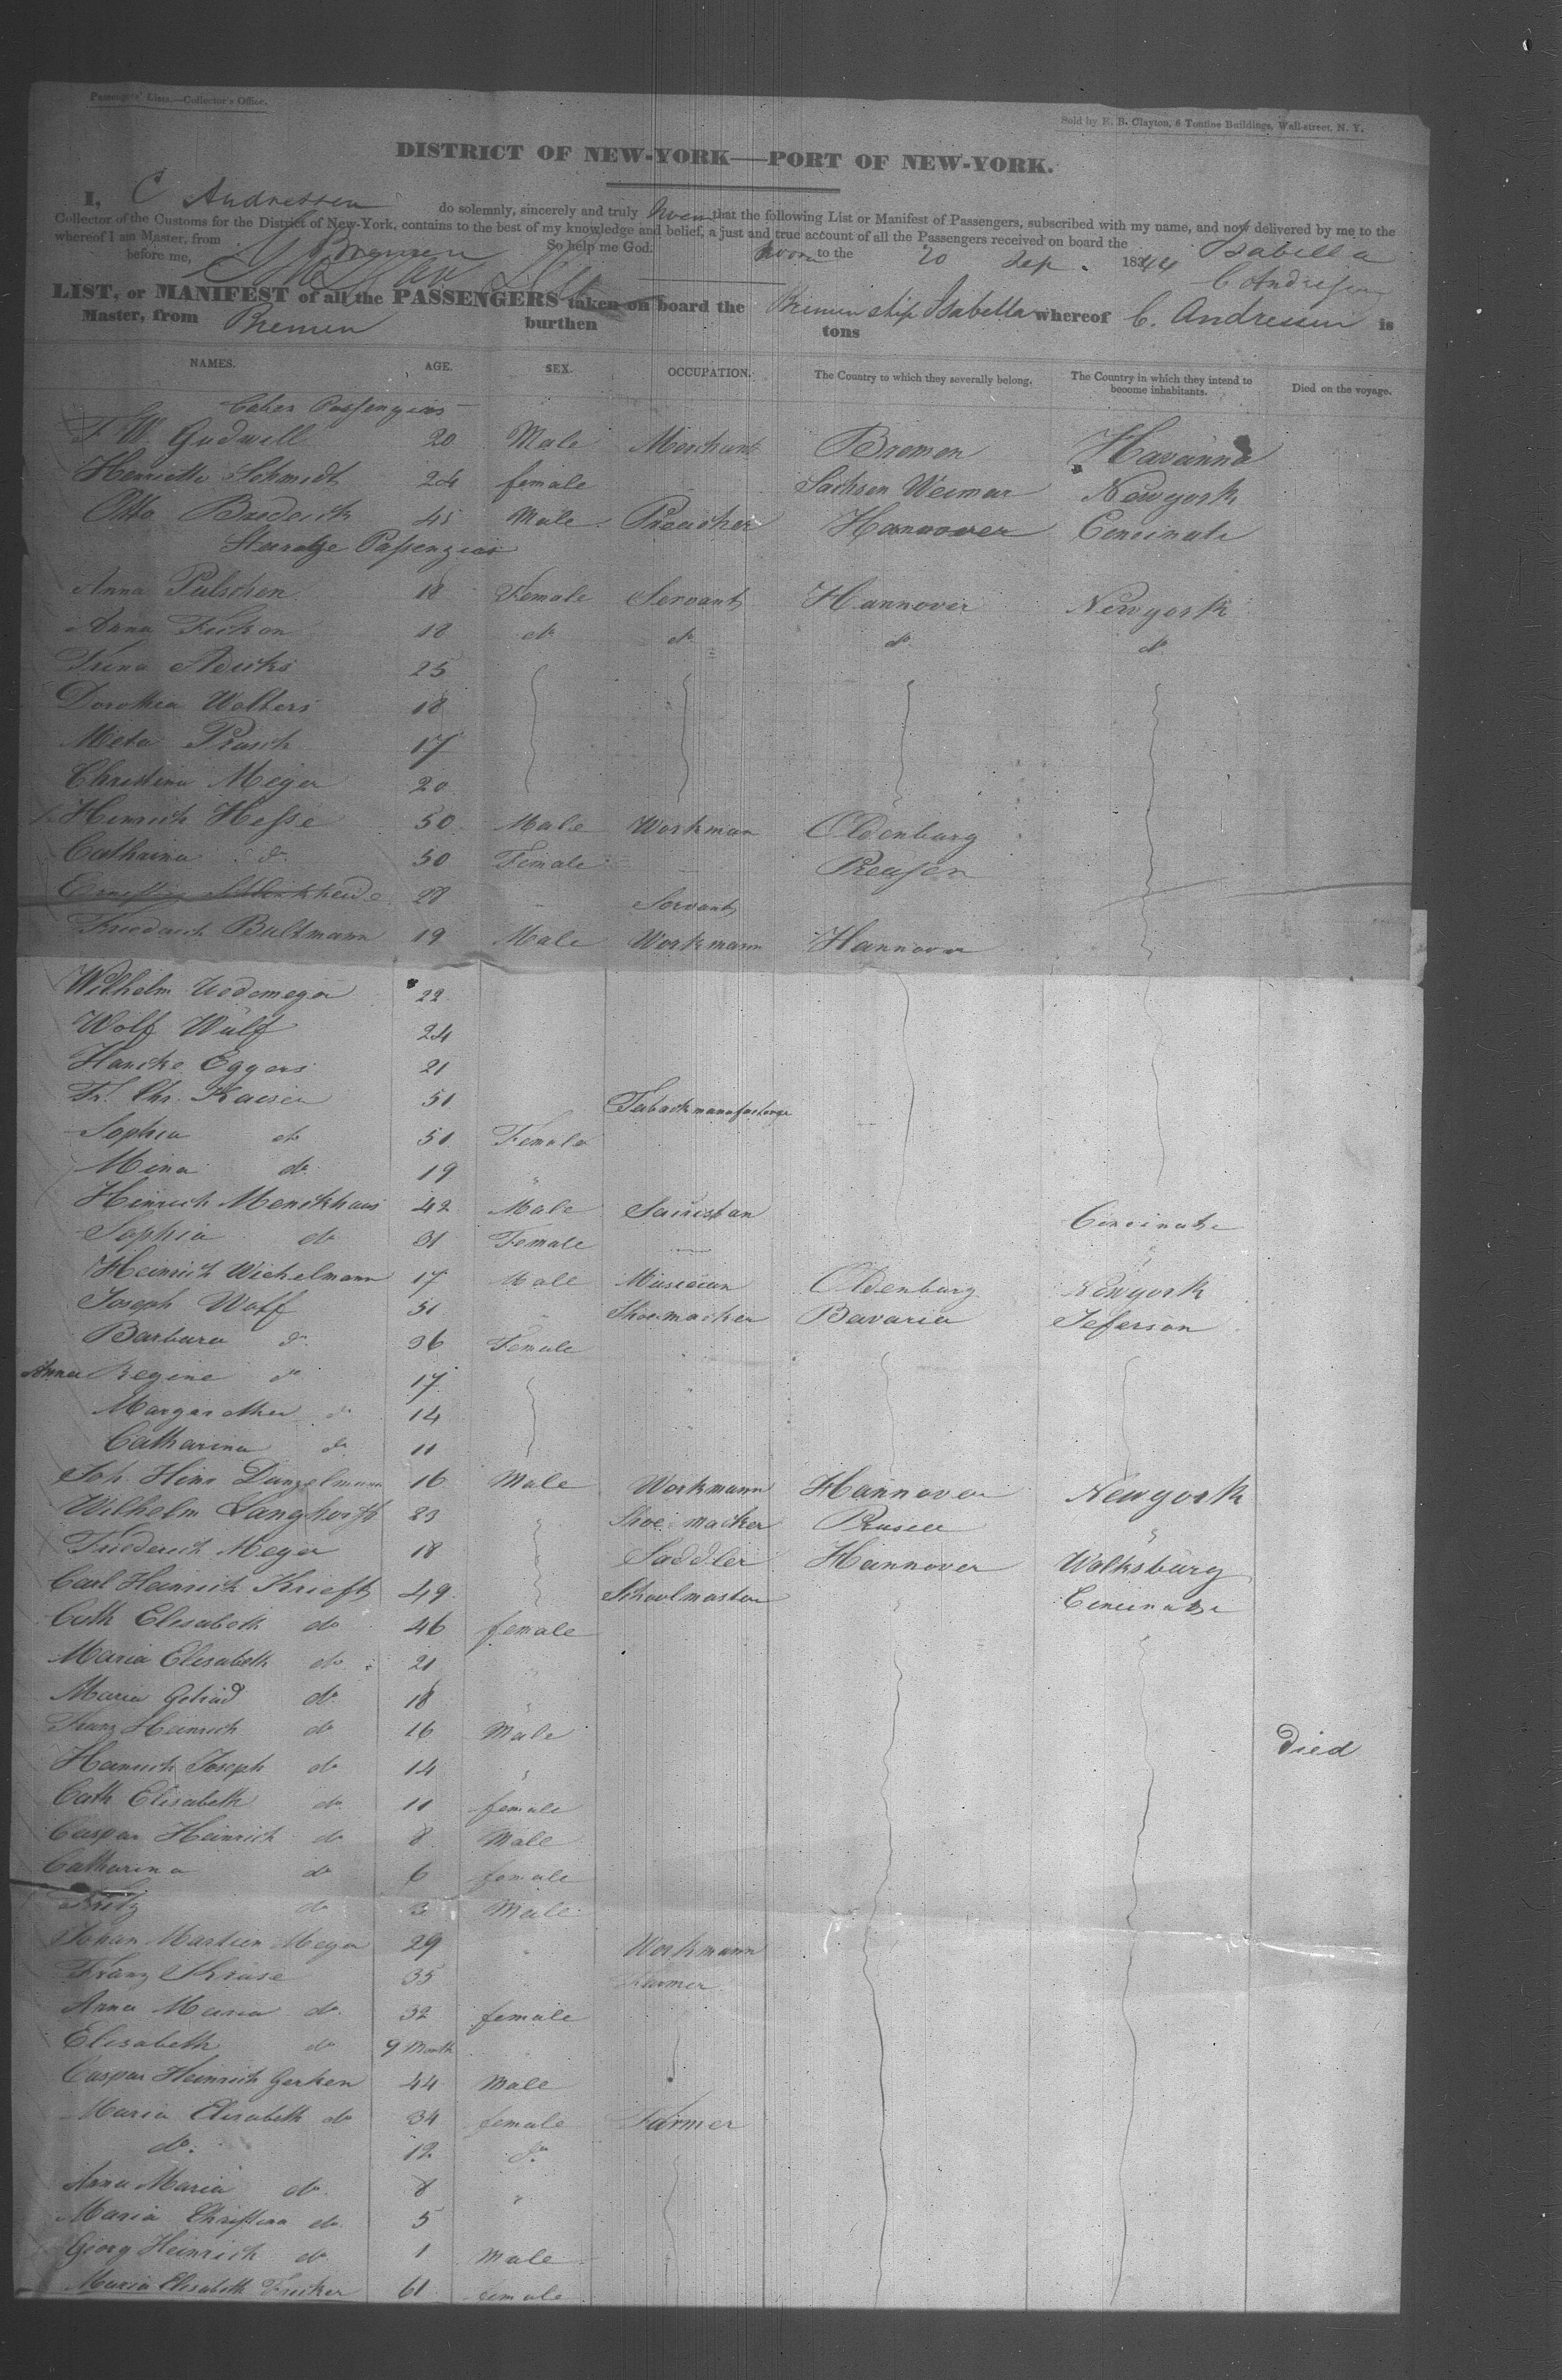 Passengers' Lists.—Collector's Office.
Sold by E. B. Clayton, 6 Tontine Buildings, Wall-street, N. Y.
DISTRICT OF NEW-YORK—PORT OF NEW-YORK.
I, C Andressen do solemnly, sincerely and truly that the following List or Manifest of Passengers, subscribed with my name, and now delivered by me to the
Collector of the Customs for the District of New-York, contains to the best of my knowledge and belief, a just and true account of all the Passengers received on board the Isabella
whereof I am Master, from Bremen So help me God.
before me, to the 20 Sep. 1844 C Andresen
LIST, or MANIFEST of all the PASSENGERS taken on board the Bremen ship Isabella whereof C. Andressen is
Master, from Bremen burthen tons
NAMES. AGE. SEX. OCCUPATION. The Country to which they severally belong. The Country in which they intend to become inhabitants. Died on the voyage.
Passengers
F W. Gudwill 20 Male Merchant Bremen Havanna
Henriette Schmidt 24 female Sachsen Weimar Newyork
Otto Brederick 45 Male Preacher Hannover Cincinate
Passengers
Anna Pulschen 18 Female Servant Hannover Newyork
Anna 18 do do do do
Trina 25
Dorothea Wolters 18
Meta Prasch 17
Christina Meyer 20
Heinrich Hesse 50 Male Workman Oldenburg
Cathrina do 50 Female Preusen
28 Servant
Friedrich Bultmann 19 Male Workmann Hannover
Wilhelm Uedemeyer 22
Wolf Wulf 24
Hancke Eggers 21
Fr. Chr. Kaiser 51
Sophia do 51 Female
Mina do 19 "
Heinrich Menckhaus 42 Male Cincinate
Sophia do 31 Female — "
Heinrich Wichelmann 17 Male Musician Oldenburg Newyork
Joseph Wolf 51 " Shoemacker Bavaria Jeferson
Barbara do 36 Female
Anna Regine do 17
Margarethe do 14
Catharina do 11
Joh. Hinr Danzelmann 16 Male Workmann Hannover Newyork
Wilhelm Langhorst 23 " Shoe macker "
Friederich Meyer 18 Saddler Hannover Walksburg
Carl Heinrich Krieft 49 Schoolmaster Cincinate
Cath Elisabeth do 46 female
Maria Elisabeth do 21 "
Maria do 18 "
Franz Heinrich do 16 Male Died
Heinrich Joseph do 14 "
Cath Elisabeth do 11 female
Caspar Heinrich do 8 Male
Catharina do 6 female
Fritz do 3 Male
Johan Martien Meyer 29 " Workmann
Franz Kruse 35 Farmer
Anna Maria do. 32 female
Elisabeth do 9 Month "
Caspar Heinrich Gerken 44 Male
Maria Elisabeth do 34 female Farmer
do. 12 do
Anna Maria do. 8 "
Maria Christina do. 5
Georg Heinrich do 1 Male
Maria Elisabeth 61 female